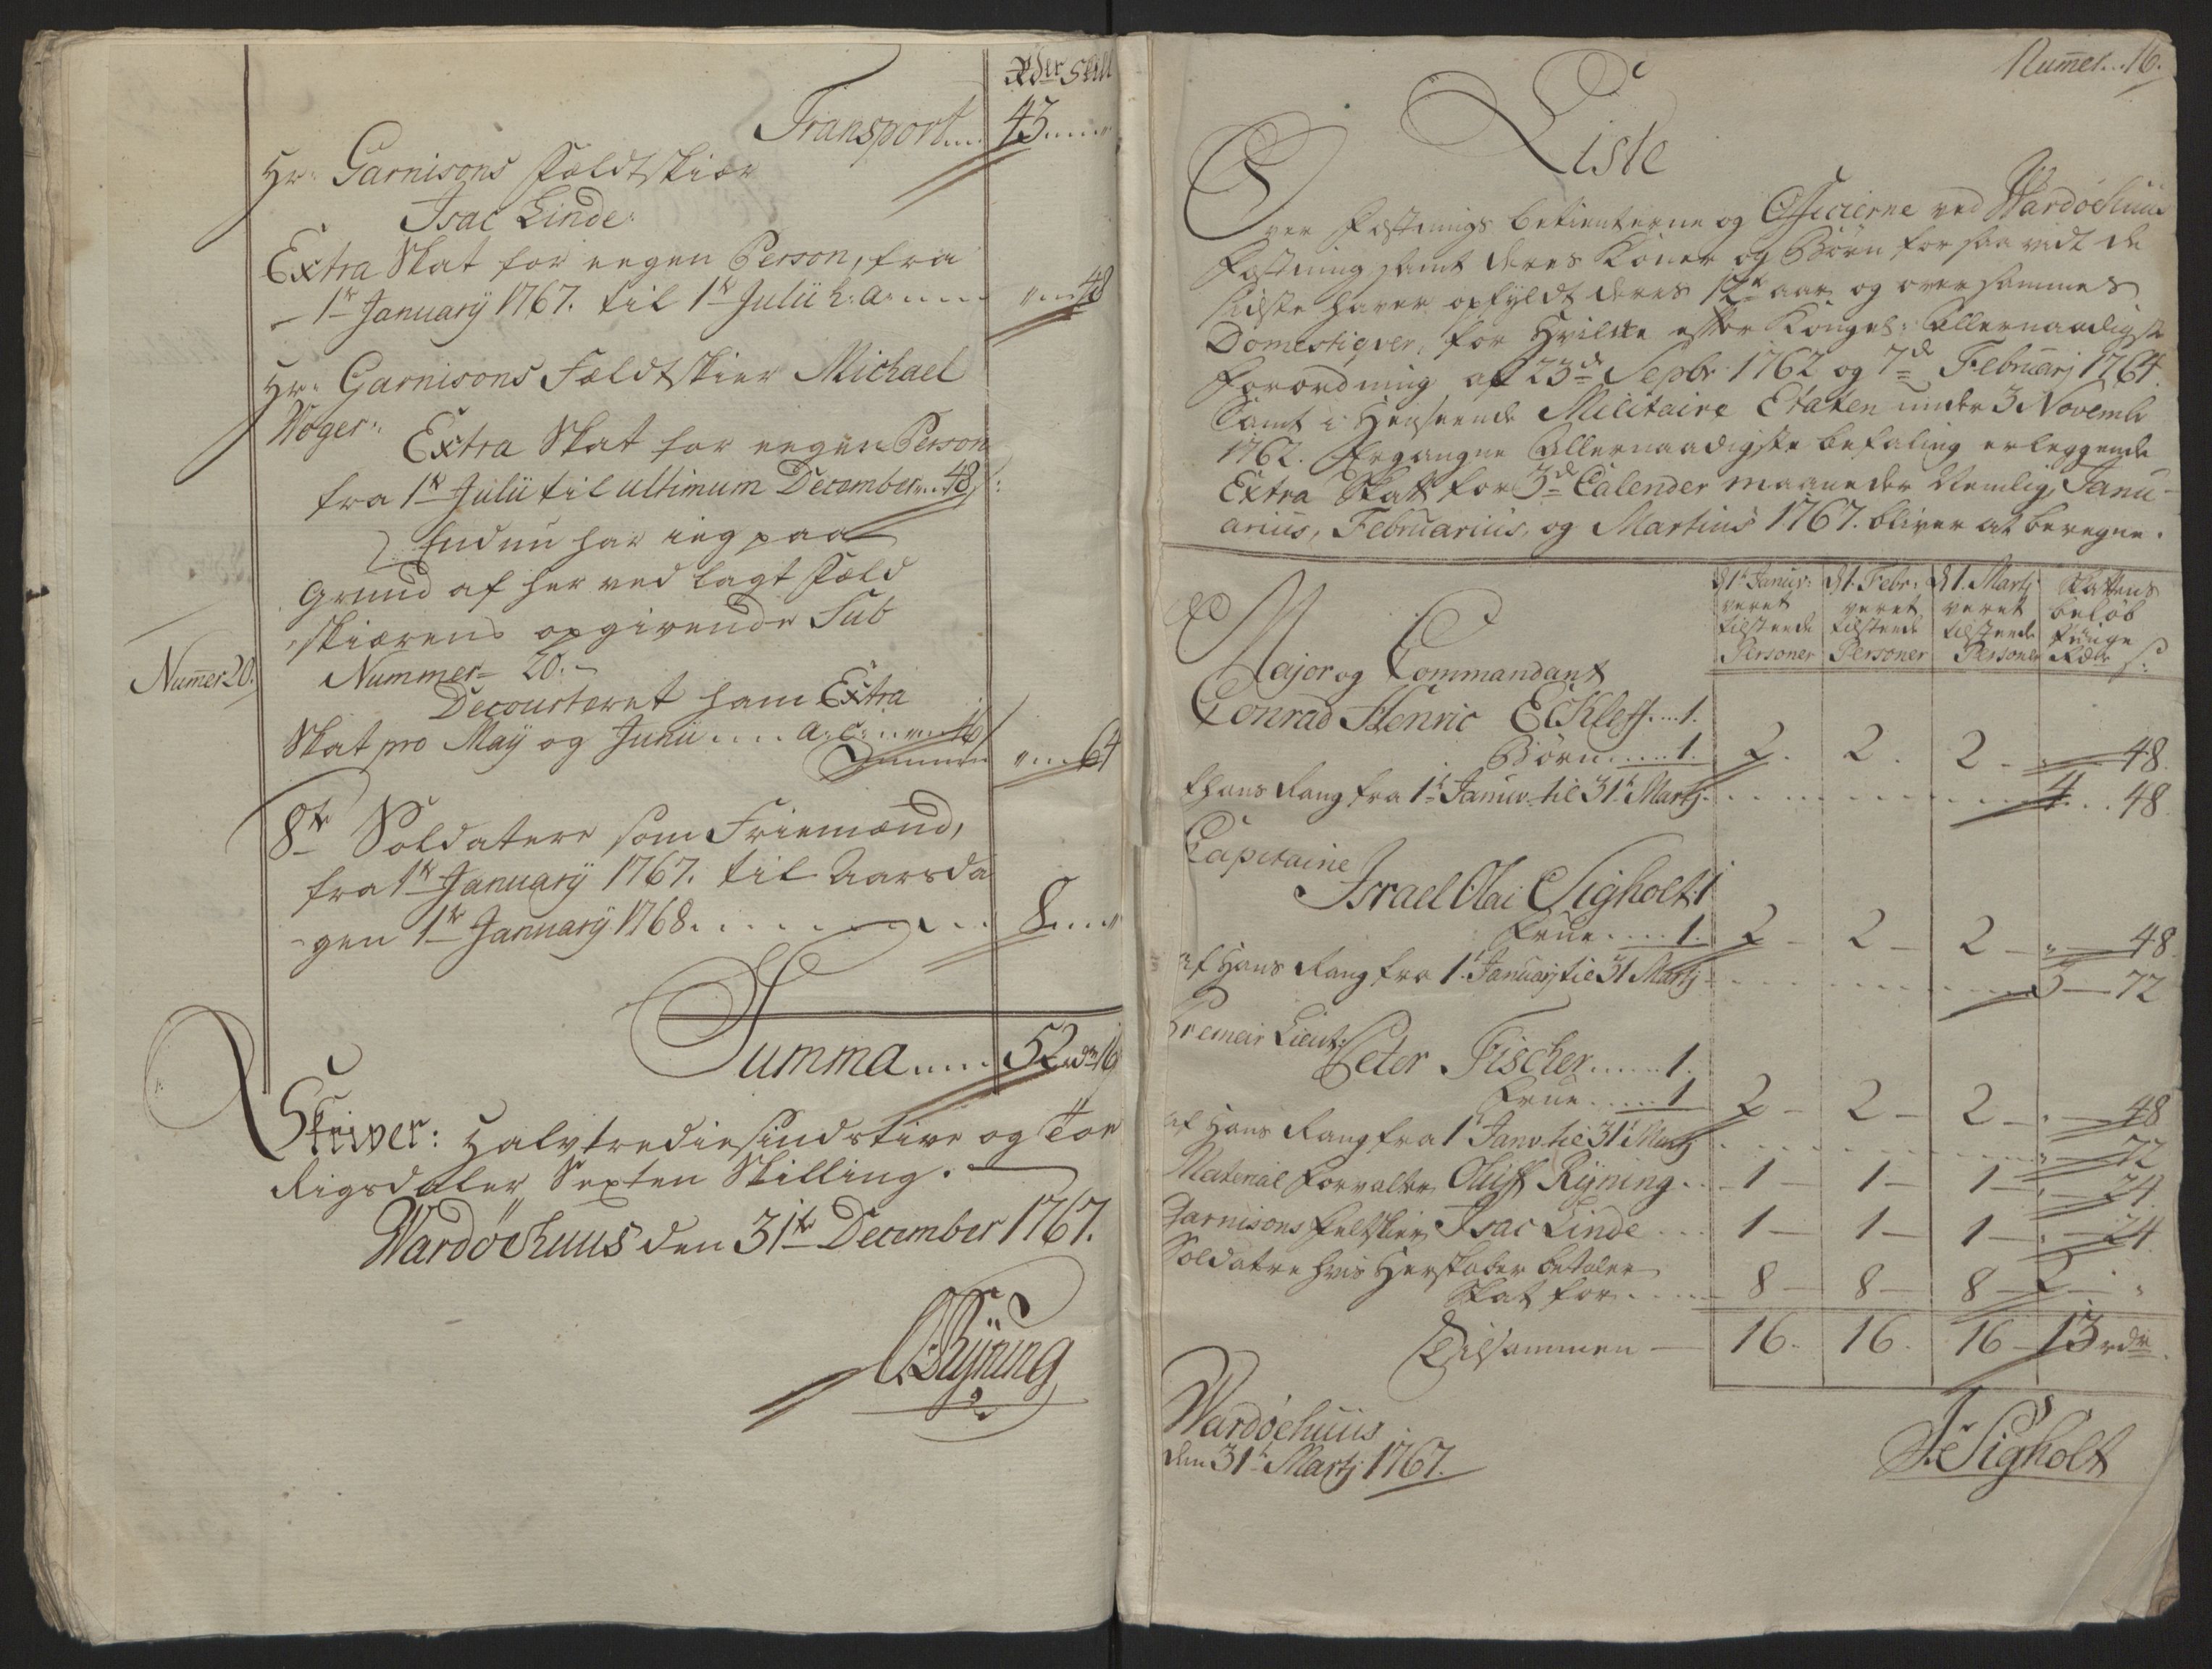 Rdr Skill
Transport.... 43.....
Hr: Garnisons Fældtskiær
Isac Linde:
Extra Skat for eegen Person, fra
1te January 1767. til 1te Julii h: a:..... " ... 48
Hr: Garnisons Fældtskier Michael
Woger: Extra Skat for eegen Person
fra 1te Julii til ultimum December... 48 s:
Endnu har ieg paa
Grund af her ved lagt Fæld
skiærens opgivende Sub
Numer 20.
Nummer 20.-
Decourteret ham Extra
Skat pro Maÿ og Junii.... a: c: ..... 16
" ... 64
8te Soldatere som Friemænd,
fra 1te Januarÿ 1767. til Aarsda
gen 1te Januarÿ 1768......... 8....
Summa..... 52 rdr 16
Skriver: Halvtrediesindstive og Toe
Rigsdaler Sexten Skilling.
Wardöehuus den 31te December 1767.
O Rÿning
Numer... 16.
Liste
Over Fæstnings betienterne og Officierne ved Wardöehuus
Fæstning samt deres Koner og Börn for saa vidt de
sidste haver opfyldt deres 12te aar og over sammes
Domestiqver, for Hvilke efter Kongel: Allernaadigste
Forordning af 23de Septbr 1762 og 7de Februarj 1764.
Samt i Henseende Militaire Etaten under 3 Novembr
1762. Ergangne Allernaadigste befaling erleggende
Extra Skatt for 3de Calender maaneder Nemlig, Janu-
arius, Februarius, og Martius 1767. bliver at beregne.
d 1te Januar: d 1. Febr: d 1. Martj Skattens
veret veret veret beløb
tilsteede tilsteede tilsteede Penge
Personer Personer Personer Rdlr s:
Major og Commandant
Conrad Henric Eckleff.... 1.
Börn...... 1. 2. 2. 2 - " 48.
af Hans Rang fra 1te Januar. til 31te Martj......... 4... 48
Capitaine
Israel Olai Sigholt 1
Frue..... 1. 2 - 2 - 2 - " 48.
af Hans Rang fra 1. Januarj til 31 Martj......... 3 - 72
Premeir Lieut:
Peter Fischer...... 1.
Frue..... 1 2 - 2 - 2 - " 48
af Hans Rang fra 1 Janv. til 31te Martj......... " 72
Material Forvalter Oluff Rÿning... 1 - 1 - 1 - " 24
Garnisons Feltskier Isac Linde... 1 - 1 - 1 - " 24
Soldatre hvis Herskaber betaler
Skat for..... 8 - 8 - 8 - 2 - "
Tilsammen - 16. 16. 16 - 13 rdr.
Wardöehuus
den 31te Martj 1767.
Sigholt